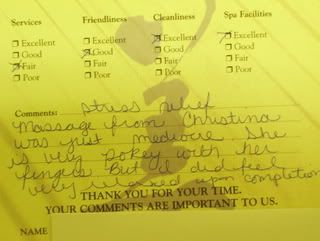 Services Friendliness Cleanliness Spa Facilities
Excellent Excellent Excellent Excellent
Good Good Good Good
Fair Fair Fair Fair
Poor Poor Poor Poor
Comments: stress relief
Massage from Christina
was just mediocre. She
is very pokey with her
fingers. But I did feel
very relaxed upon completion
THANK YOU FOR YOUR TIME.
YOUR COMMENTS ARE IMPORTANT TO US.
NAME